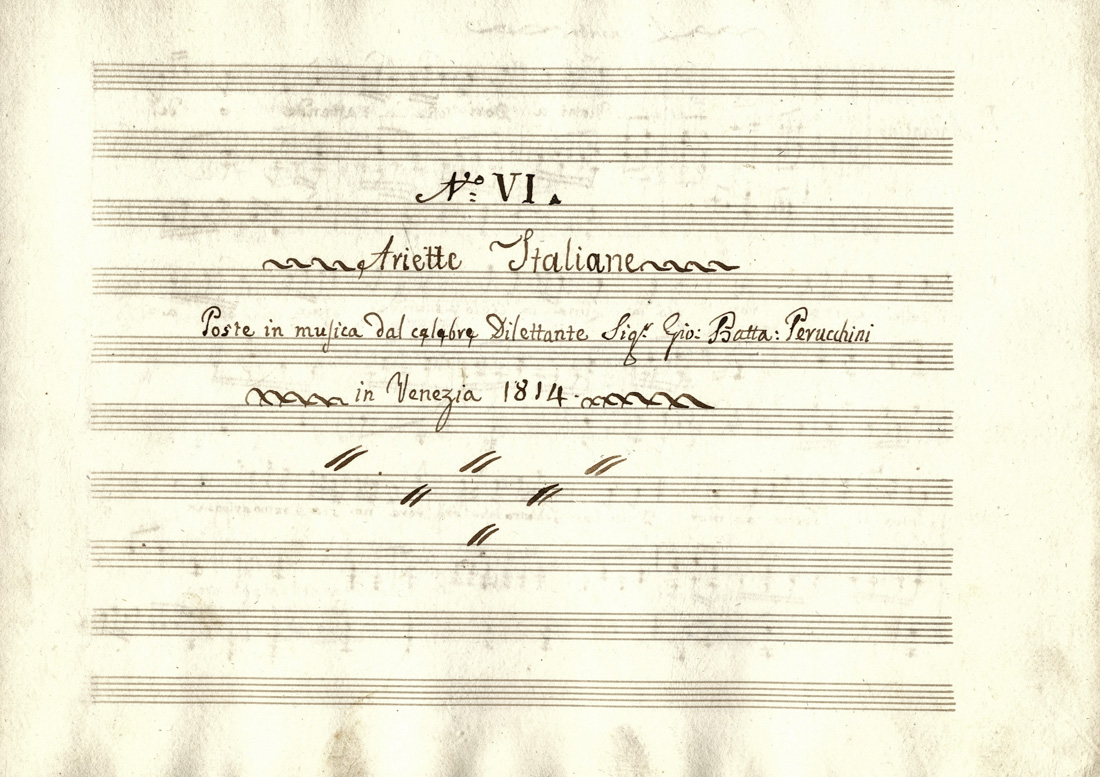 No: VI.
Ariette Italiane
Poste in musica dal celebre Dilettante Sigr. Gio: Batta: Perucchini
in Venezia 1814.